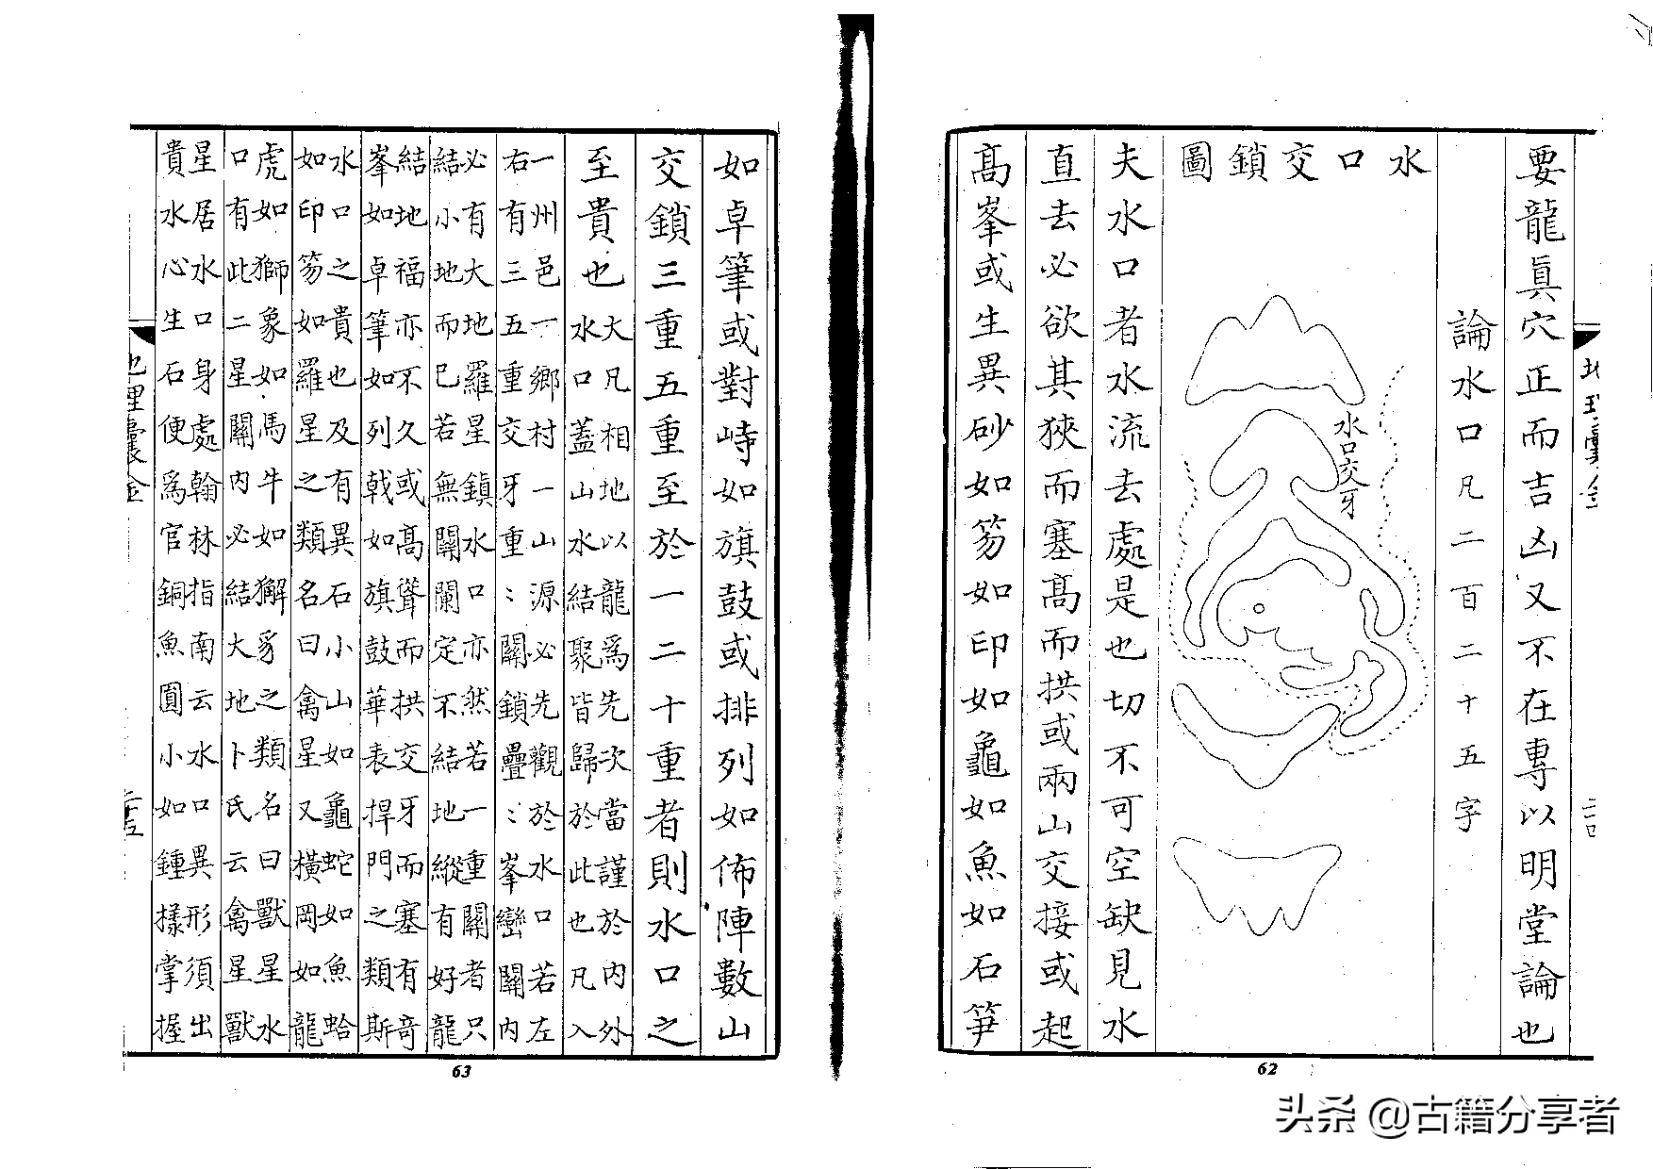 要龍眞穴正而吉凶又不在專以明堂論也
論水口凡二百二十五字
水口交鎖圖
水口交牙
夫水口者水流去處是也切不可空缺見水
直去必欲其狹而塞高而拱或兩山交接或起
高峯或生異砂如笏如印如龜如魚如石笋
62
如卓筆或對峙如旗鼓或排列如佈陣數山
交鎖三重五重至於一二十重者則水口之
至貴也
大凡相地以龍爲先次當謹於內外
水口蓋山水結聚皆歸於此也凡入
一州邑一鄉村一山源必先觀於水口若左
右有三五重交牙重〻關鎖疊〻峯巒關內
必有大地羅星鎮水口亦然若一重關者只
結小地而已若無關闌定不結地縱有好龍
結地福亦不久或高聳而拱交牙而塞有奇
峯如卓筆如列戟如旗鼓華表捍門之類斯
水口之貴也及有異石小山如龜蛇如魚蛤
如印笏如羅星之類名曰禽星又橫岡如龍
虎如獅象如馬牛如獬豸之類名曰獸星水
口有此二星關內必結大地卜氏云禽星獸
星居水口身處翰林指南云水口異形須出
貴水心生石便爲官銅魚圓小如鍾樣掌握
地理囊金
63
头条 @古籍分享者